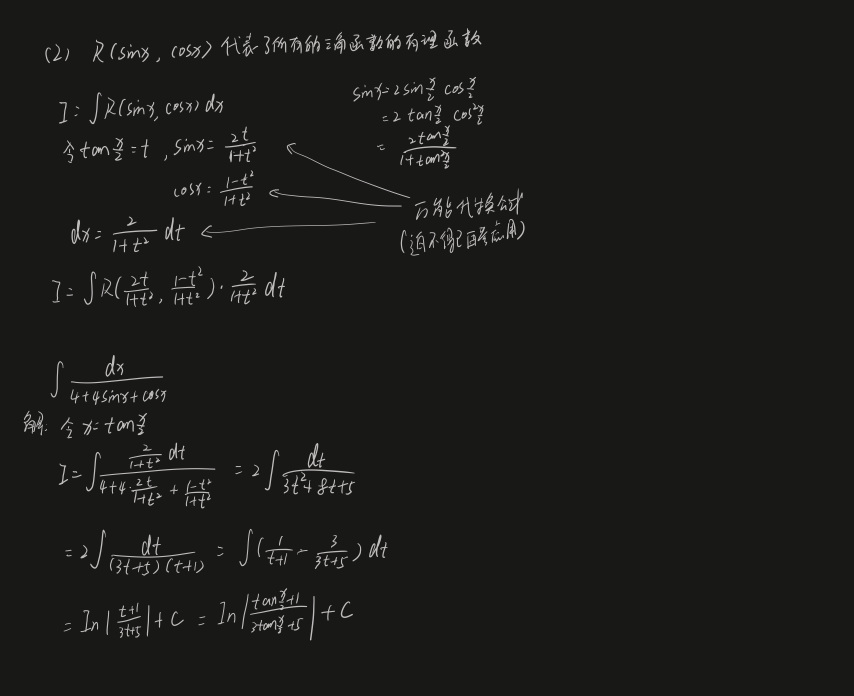 (2) R(sinx, cosx) 代表了所有的三角函数的有理函数
I = ∫R(sinx, cosx) dx
令 tan x/2 = t , sinx = 2t/(1+t²)
cosx = (1-t²)/(1+t²)
dx = 2/(1+t²) dt
I = ∫R(2t/(1+t²), (1-t²)/(1+t²)) · 2/(1+t²) dt
sinx = 2sin x/2 cos x/2
= 2 tan x/2 cos² x/2
= 2tan x/2 / (1+tan² x/2)
万能代换公式
(迫不得已再去应用)
∫ dx/(4+4sinx+cosx)
解: 令 x = tan x/2
I = ∫ (2/(1+t²) dt)/(4+4·2t/(1+t²) + (1-t²)/(1+t²)) = 2∫ dt/(3t²+8t+5)
= 2∫ dt/((3t+5)(t+1)) = ∫(1/(t+1) - 3/(3t+5)) dt
= In|(t+1)/(3t+5)| + C = In|(tan x/2 +1)/(3tan x/2 +5)| + C